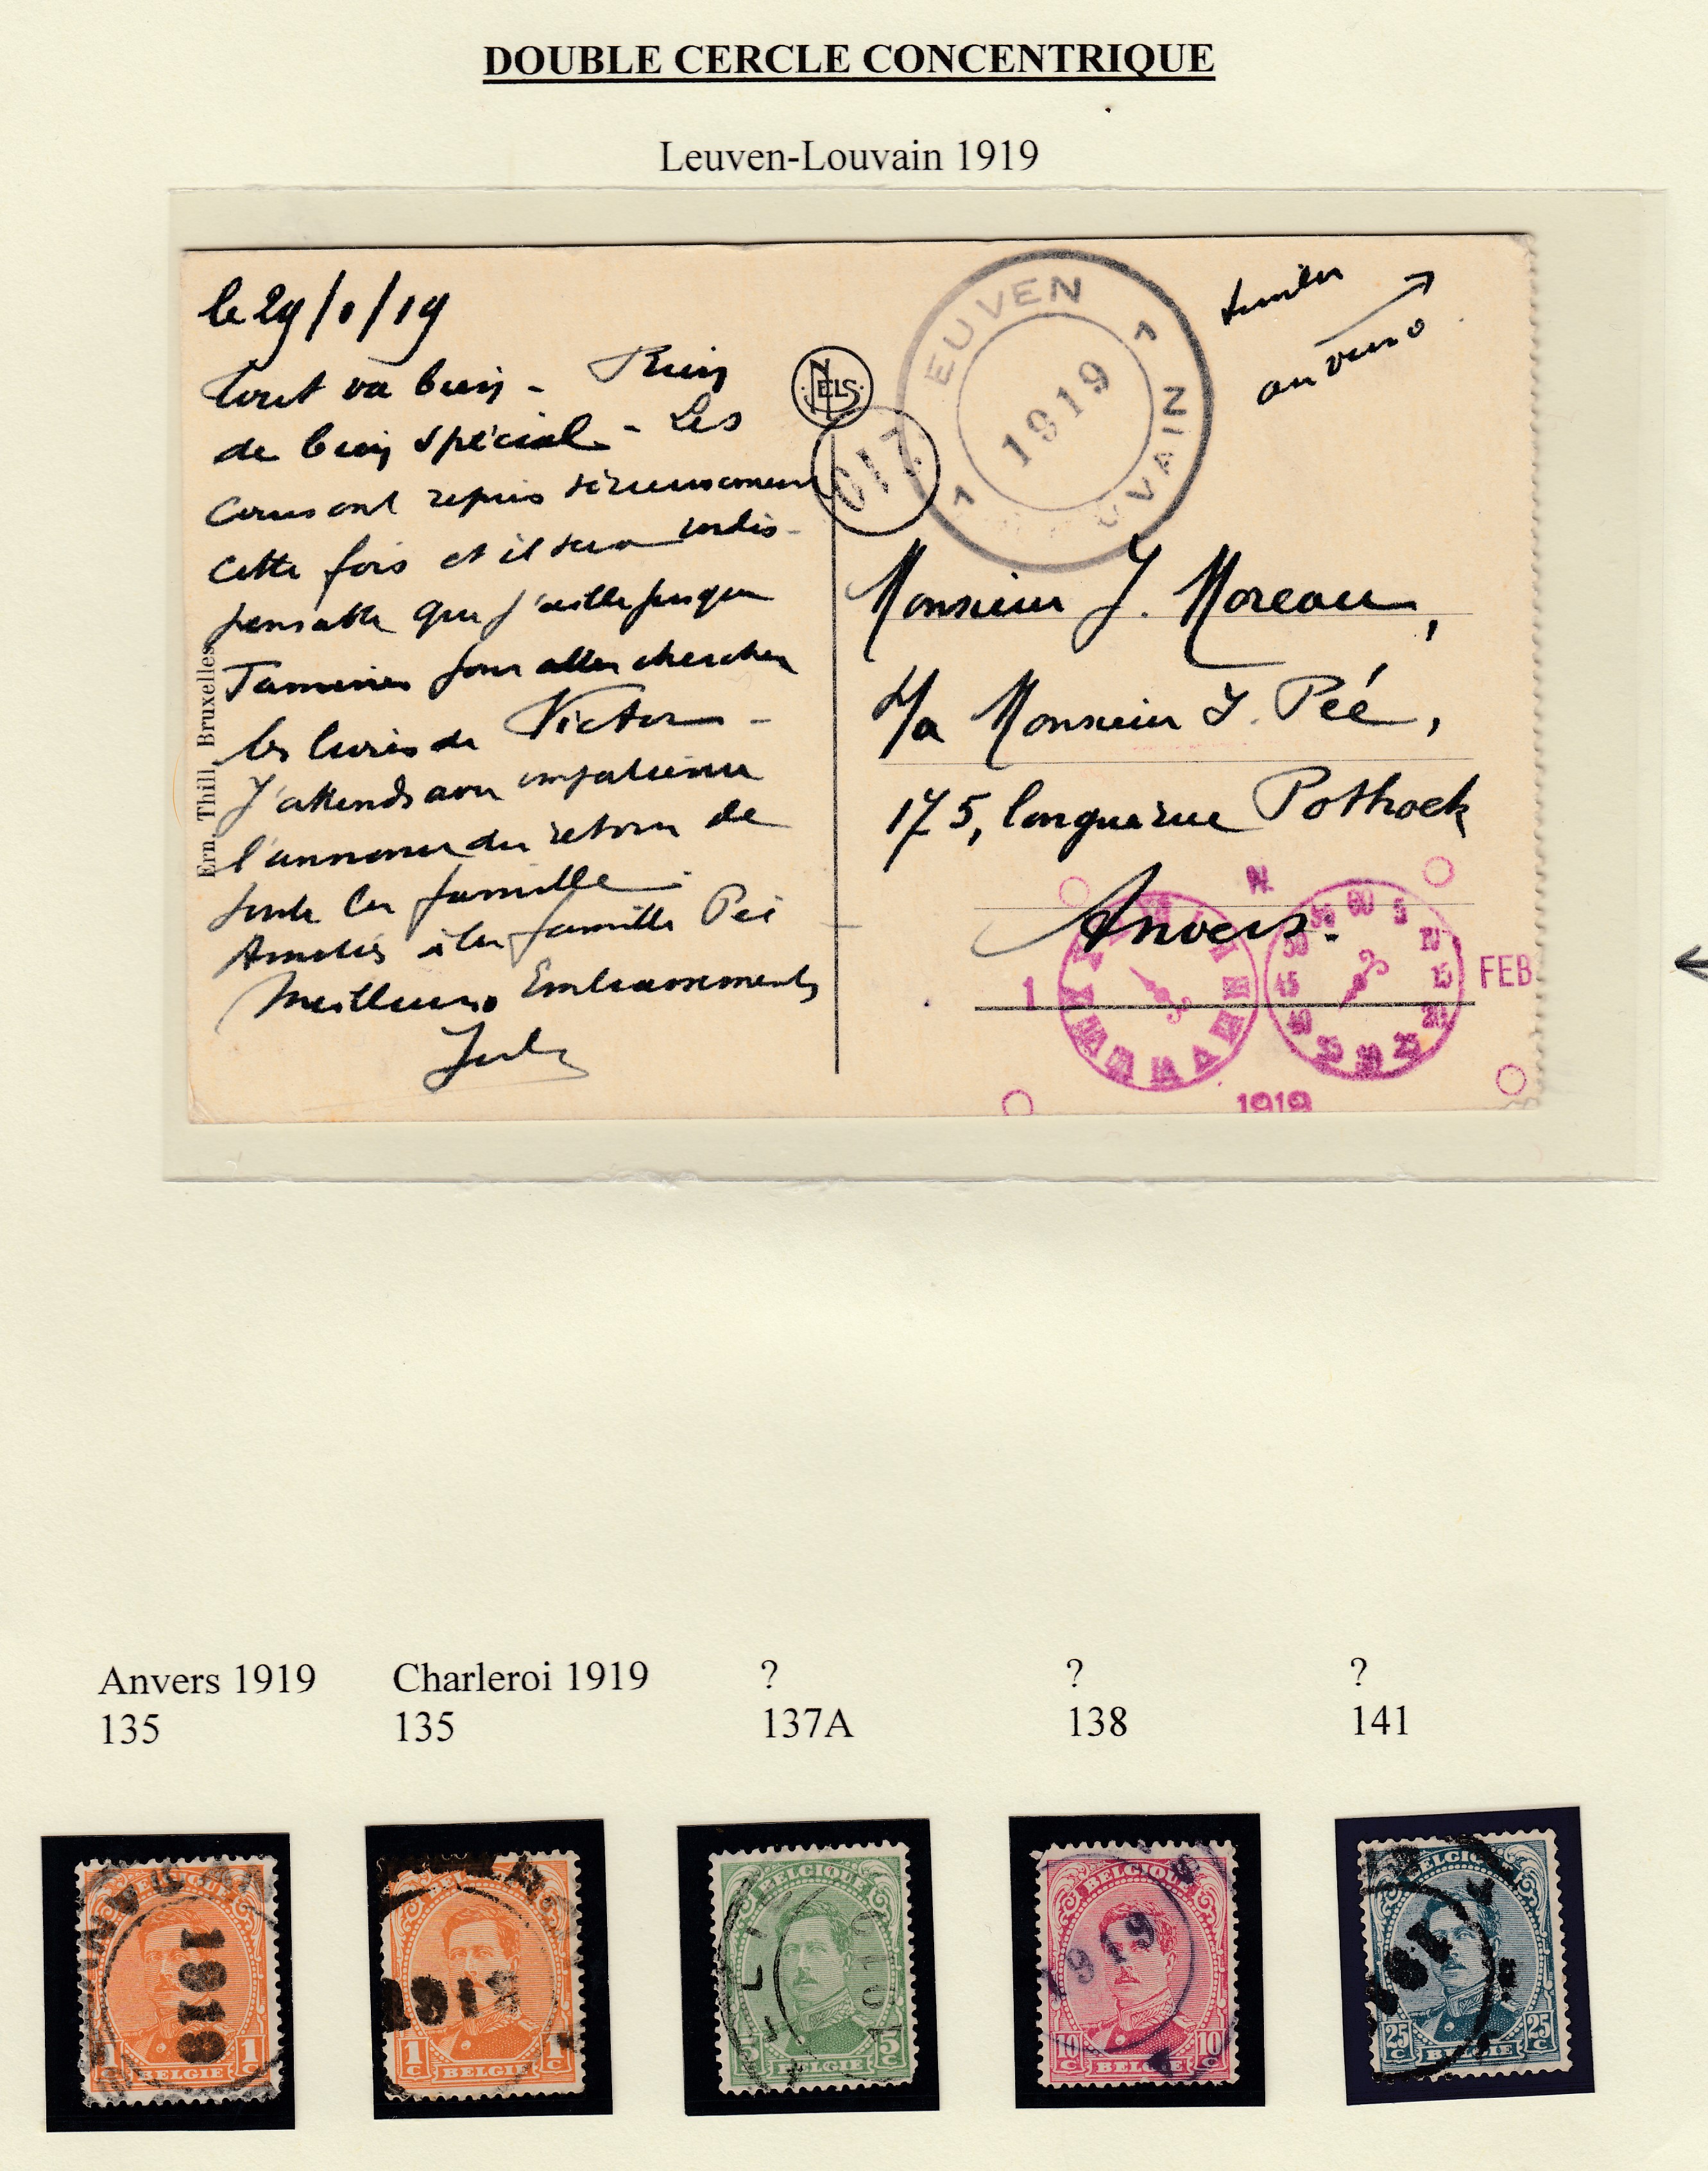 DOUBLE CERCLE CONCENTRIQUE
Leuven-Louvain 1919
le 29/1/19
Tout va bien - Rien
de bien spécial - Les
cours ont repris sérieusement
cette fois et il sera indis-
pensable que j'aille jusque
Tamines pour aller chercher
les livres de Victor -
J'attends avec impatience
l'annonce du retour de
toute la famille.
Amitiés à la famille Péé
Meilleurs Embrassements
Jules
Ern. Thill Bruxelles
NELS
EUVEN
1
1919
UVAIN
1
timbre
au verso
Monsieur J. Moreau,
c/a Monsieur J. Péé,
175, longue rue Pothoek
Anvers.
N.
60 5 10 15 20 25 30 35 40 45 50 55
1
FEB
1919
Anvers 1919
135
Charleroi 1919
135
?
137A
?
138
?
141
BELGIQUE
1919
1c 1c
BELGIE
1919
1c 1c
BELGIE
BELGIQUE
1919
5c 5c
BELGIE
BELGIQUE
1919
10c 10c
BELGIE
BELGIQUE
191
25c 25c
BELGIE